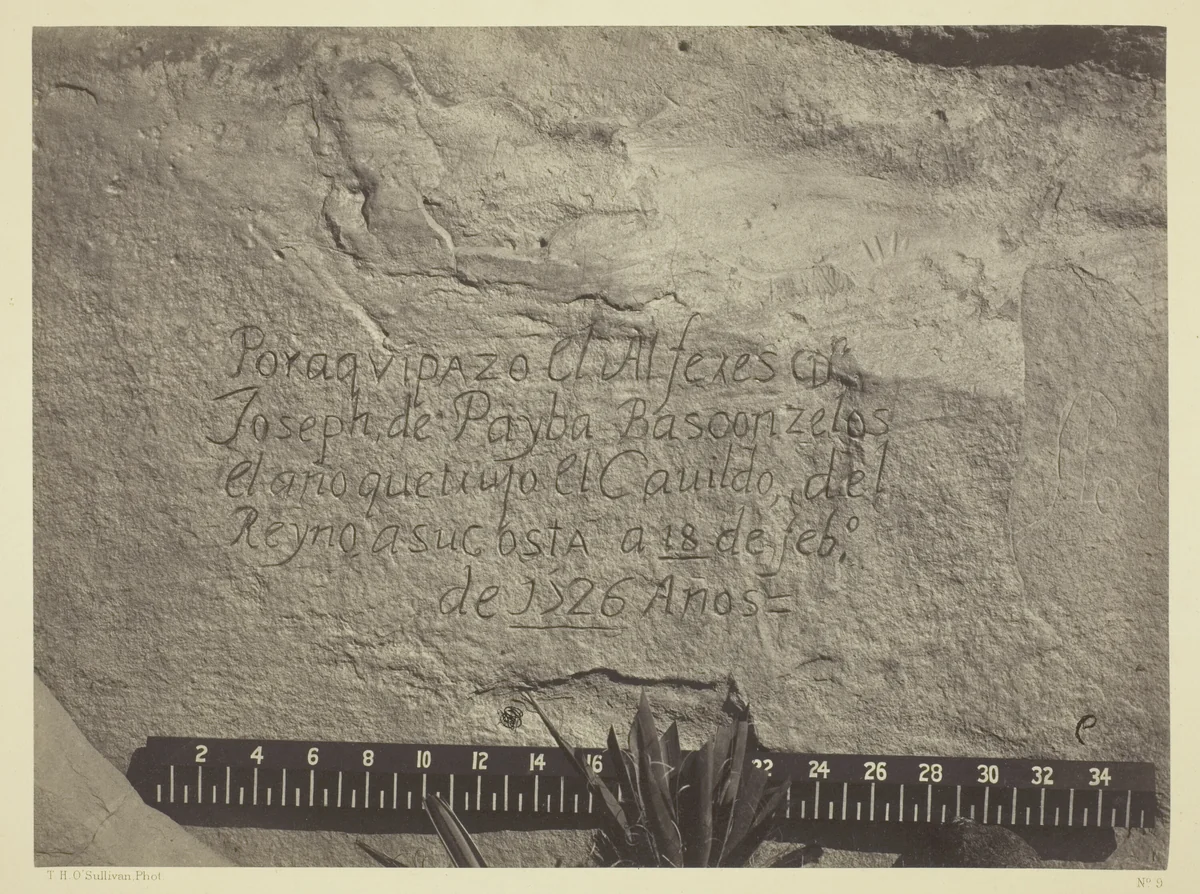 Por aqvi pAzo el Alferes Dⁿ
Joseph, de Payba Basconzelos
el año que trujo el Cauildo, del
Reyno a su costA a 18 de feb.º
de 1726 Años=
e
2 4 6 8 10 12 14 16 22 24 26 28 30 32 34
T. H. O'Sullivan, Phot.
Nº 9